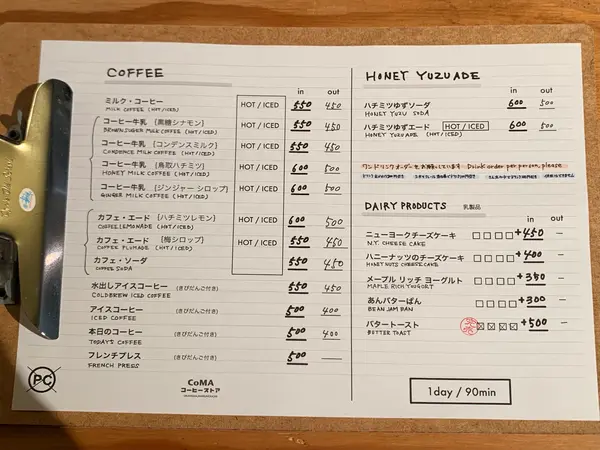 COFFEE
in out
ミルク・コーヒー HOT / ICED 550 450
MILK COFFEE (HOT/ICED)
コーヒー牛乳 [黒糖シナモン] HOT / ICED 550 450
BROWN SUGER MILK COFFEE (HOT/ICED)
コーヒー牛乳 [コンデンスミルク] HOT / ICED 550 450
CONDENCE MILK COFFEE (HOT/ICED)
コーヒー牛乳 [鳥取ハチミツ] HOT / ICED 600 500
HONEY MILK COFFEE (HOT/ICED)
コーヒー牛乳 [ジンジャー シロップ] HOT / ICED 600 500
GINGER MILK COFFEE (HOT/ICED)
カフェ・エード [ハチミツレモン] HOT / ICED 600 500
COFFEE LEMONADE (HOT/ICED)
カフェ・エード [梅シロップ] HOT / ICED 550 450
COFFEE PLUMADE (HOT/ICED)
カフェ・ソーダ 550 450
COFFEE SODA
水出しアイスコーヒー (きびだんご付き) 550 450
COLDBREW ICED COFFEE
アイスコーヒー (きびだんご付き) 500 400
ICED COFFEE
本日のコーヒー (きびだんご付き) 500 400
TODAYS COFFEE
フレンチプレス (きびだんご付き) 500 —
FRENCH PRESS
PC
CoMA
コーヒーストア
HONEY YUZUADE
in out
ハチミツゆずソーダ 600 500
HONEY YUZU SODA
ハチミツゆずエード HOT / ICED 600 500
HONEY YUZUADE (HOT/ICED)
ワンドリンクオーダーをお願いしています Drink order per person, please
DAIRY PRODUCTS 乳製品
in out
ニューヨークチーズケーキ +450 —
N.Y. CHEESE CAKE
ハニーナッツのチーズケーキ +400 —
HONEY NUTS CHEESECAKE
メープル リッチ ヨーグルト +350 —
MAPLE RICH YUNGORT
あんバターぱん +300 —
BEAN JAM PAN
バタートースト +500 —
BUTTER TOAST
1day / 90min